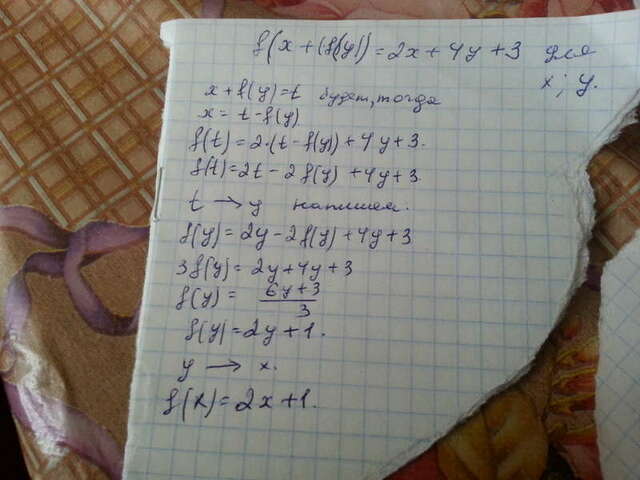 f(x+(f(y))=2x+4y+3 для
x; y.
x+f(y)=t будет, тогда
x= t-f(y)
f(t)=2·(t-f(y))+4y+3.
f(t)=2t-2f(y)+4y+3
t → y напишем.
f(y)=2y-2f(y)+4y+3
3f(y)=2y+4y+3
f(y)= 6y+3
3
f(y)=2y+1.
y → x.
f(x)=2x+1.